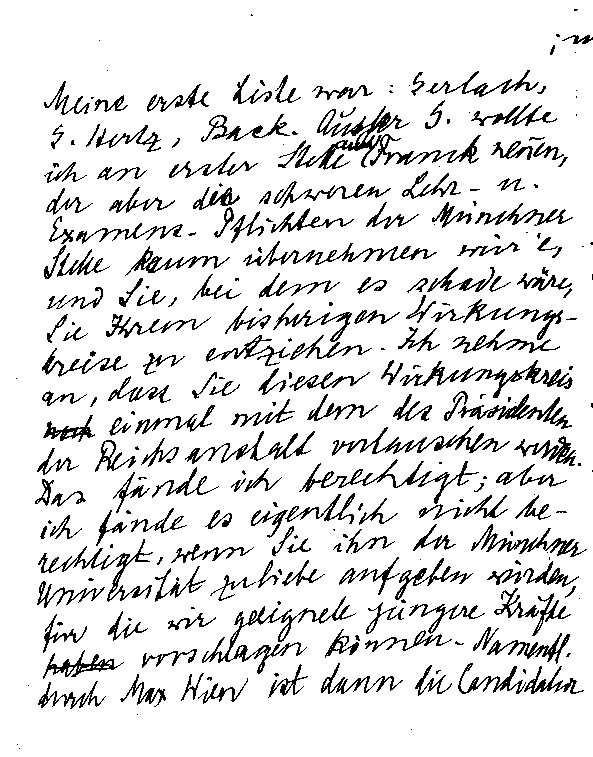 Meine erste Liste war: Gerlach,
G. Hertz, Back. Ausser G. wollte
ich an erster Stelle nur Franck nennen,
der aber die schweren Lehr- u.
Examens-Pflichten der Münchner
Stelle kaum übernehmen würde,
und Sie, bei dem es schade wäre,
Sie Ihrem bisherigen Wirkungs-
kreise zu entziehen. Ich nehme
an, dass Sie diesen Wirkungskreis
noch einmal mit dem des Präsidenten
der Reichsanstalt vertauschen werden.
Das fände ich berechtigt; aber
ich fände es eigentlich nicht be-
rechtigt, wenn Sie ihn der Münchner
Universität zuliebe aufgeben würden,
für die wir geeignete jüngere Kräfte
haben vorschlagen können. Namentl.
durch Max Wien ist dann die Candidatur